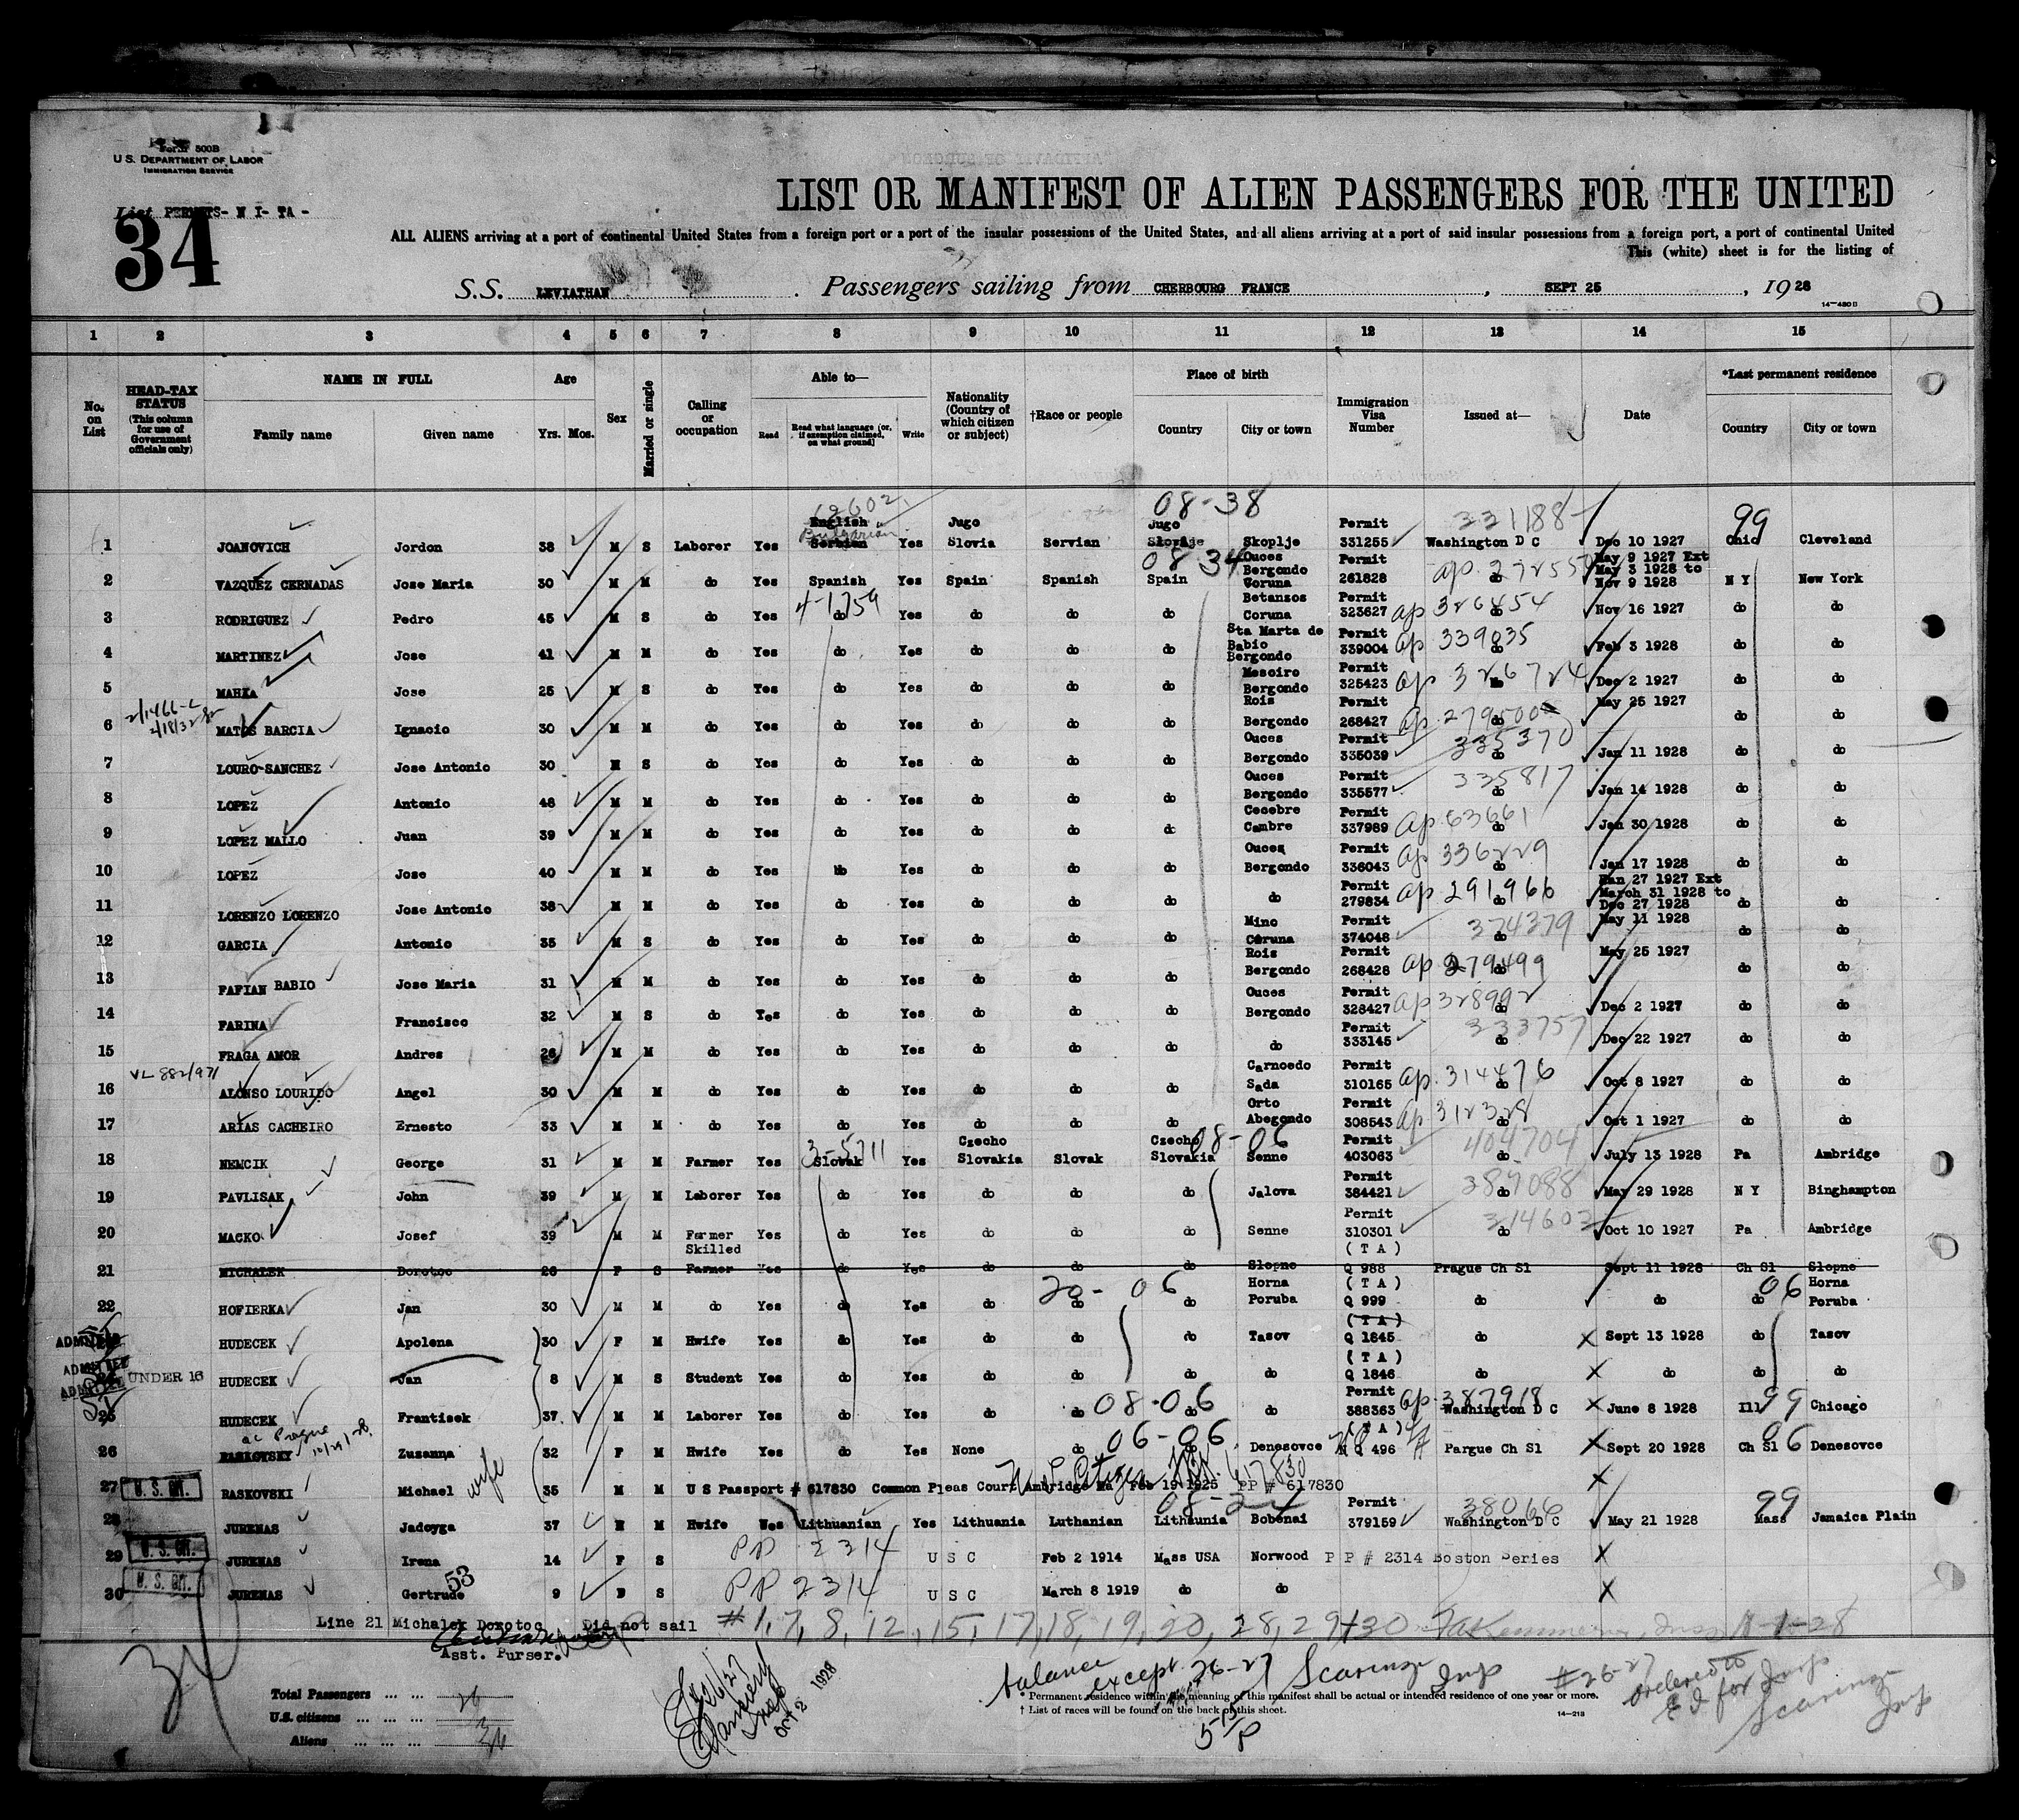 Form 500B
U.S. DEPARTMENT OF LABOR
IMMIGRATION SERVICE
List PERMITS- N I- TA -
34
LIST OR MANIFEST OF ALIEN PASSENGERS FOR THE UNITED
ALL ALIENS arriving at a port of continental United States from a foreign port or a port of the insular possessions of the United States, and all aliens arriving at a port of said insular possessions from a foreign port, a port of continental United
This (white) sheet is for the listing of
S.S. LEVIATHAN . Passengers sailing from CHERBOURG FRANCE , SEPT 25 , 1928
14-480B
1 2 3 4 5 6 7 8 9 10 11 12 13 14 15
No. on List
HEAD-TAX STATUS (This column for use of Government officials only)
NAME IN FULL Family name Given name
Age Yrs. Mos.
Sex
Married or single
Calling or occupation
Able to— Read Read what language [or, if exemption claimed, on what ground] Write
Nationality (Country of which citizen or subject)
†Race or people
Place of birth Country City or town
Immigration Visa Number
Issued at—
Date
*Last permanent residence Country City or town
08-38 331188 99
1 JOANOVICH Jordon 38 M S Laborer Yes English Bulgarian Serbian Yes Jugo Slovia Servian Jugo Slovije Skoplje Permit 331255 Washington D C Dec 10 1927 Ohio Cleveland
08 34
2 VAZQUEZ CERNADAS Jose Maria 30 M M do Yes Spanish Yes Spain Spanish Spain Ouces Bergondo Coruna Permit 261828 do May 9 1927 Ext May 3 1928 to Nov 9 1928 N Y New York
4-1759
3 RODRIGUEZ Pedro 45 M S do Yes do Yes do do do Betanzos Coruna Permit 323627 ap 326454 do Nov 16 1927 do do
4 MARTINEZ Jose 41 M M do Yes do Yes do do do Sta Marta de Babio Bergondo Permit 339004 ap 339835 do Feb 3 1928 do do
5 MAHIA Jose 25 M S do Yes do Yes do do do Mesoiro Bergondo Permit 325423 ap 326724 Dec 2 1927 do do
6 MATOS BARCIA Ignacio 30 M M do Yes do Yes do do do Rois Bergondo Permit 268427 ap 279500 do May 25 1927 do do
7 LOURO-SANCHEZ Jose Antonio 30 M S do Yes do Yes do do do Ouces Bergondo Permit 335039 335370 do Jan 11 1928 do do
8 LOPEZ Antonio 48 M M do Yes do Yes do do do Ouces Bergondo Permit 335577 335817 do Jan 14 1928 do do
9 LOPEZ MALLO Juan 39 M M do Yes do Yes do do do Cecebre Cambre Permit 337989 ap 63661 do Jan 30 1928 do do
10 LOPEZ Jose 40 M M do Yes do Yes do do do Ouces Bergondo Permit 336043 ap 336229 Jan 17 1928 do do
11 LORENZO LORENZO Jose Antonio 38 M M do Yes do Yes do do do do Permit 279834 ap 291,966 do Jan 27 1927 Ext March 31 1928 to Dec 27 1928 do do
12 GARCIA Antonio 35 M S do Yes do Yes do do do Mino Coruna Permit 374048 374379 do May 11 1928 do do
13 FAFIAN BABIO Jose Maria 31 M M do Yes do Yes do do do Rois Bergondo Permit 268428 ap 279499 do May 25 1927 do do
14 FARINA Francisco 32 M S do Yes do Yes do do do Ouces Bergondo Permit 328427 ap 328992 Dec 2 1927 do do
15 FRAGA AMOR Andres 26 M M do Yes do Yes do do do do Permit 333145 333757 do Dec 22 1927 do do
VL 882/971
16 ALONSO LOURIDO Angel 30 M M do Yes do Yes do do do Carnoedo Sada Permit 310165 ap. 314476 do Oct 8 1927 do do
17 ARIAS CACHEIRO Ernesto 33 M M do Yes do Yes do do do Orto Abegondo Permit 308543 ap 312328 do Oct 1 1927 do do
3-5711 08-06
18 NEMCIK George 31 M M Farmer Yes Slovak Yes Czecho Slovakia Slovak Czecho Slovakia Senne Permit 403063 404704 do July 13 1928 Pa Ambridge
19 PAVLISAK John 39 M M Laborer Yes do Yes do do do Jalova Permit 384421 389088 do May 29 1928 N Y Binghampton
20 MACKO Josef 39 M M Farmer Yes do Yes do do do Senne Permit 310301 314603 do Oct 10 1927 Pa Ambridge
21 MICHALEK Dorotoc 26 F S Skilled Farmer Yes do Yes do do do Slopne (TA) Q 988 Prague Ch Sl Sept 11 1928 Ch Sl Slopne
20-06 06
22 HOFIERKA Jan 30 M M do Yes do Yes do do do Horna Poruba (TA) Q 999 do do do Horna Poruba
ADMITTED HUDECEK Apolena 30 F M Hwife Yes do Yes do do do Tasov (TA) Q 1845 do Sept 13 1928 do Tasov
ADMITTED UNDER 16 HUDECEK Jan 8 M S Student Yes do Yes do do do do (TA) Q 1846 do do do do
ADMITTED
08-06 99
25 HUDECEK Frantisek 37 M M Laborer Yes do Yes do do do do Permit 388363 ap 387918 Washington D C June 8 1928 Ill Chicago
ac Prague 10/29/28 06-06 06
26 RASKOVSKY Zuzanna 32 F M Hwife Yes do Yes None do do Denesovce (TA) N Q 496 Pargue Ch Sl Sept 20 1928 Ch Sl Denesovce
wife
27 U. S. CIT. RASKOVSKI Michael 35 M M U S Passport # 617830 Common Pleas Court Ambridge Pa Feb 19 1925 PP # 617830
99
28 JURENAS Jadoyga 37 M Hwife Yes Lithuanian Yes Lithuania Luthanian Lithuania Bobenai Permit 379159 38066 Washington D C May 21 1928 Mass Jamaica Plain
29 U. S. CIT. JURENAS Irena 14 F S PP 2314 U S C Feb 2 1914 Mass USA Norwood P P # 2314 Boston Series
30 U. S. CIT. JURENAS Gertrude 53 9 S PP 2314 U S C March 8 1919 do do
Line 21 Michalek Dorotoc Did not sail #1, 7, 8, 12, 15, 17, 18, 19, 20, 28, 29+30
Asst. Purser.
balance except 26-27 Scarinzi Insp #26-27 ordered to
Oct 2 1928
* Permanent residence within the meaning of this manifest shall be actual or intended residence of one year or more.
† List of races will be found on the back of this sheet.
14-218
Total Passengers ... ...
U.S. citizens ... ... ...
Aliens ... ... ...